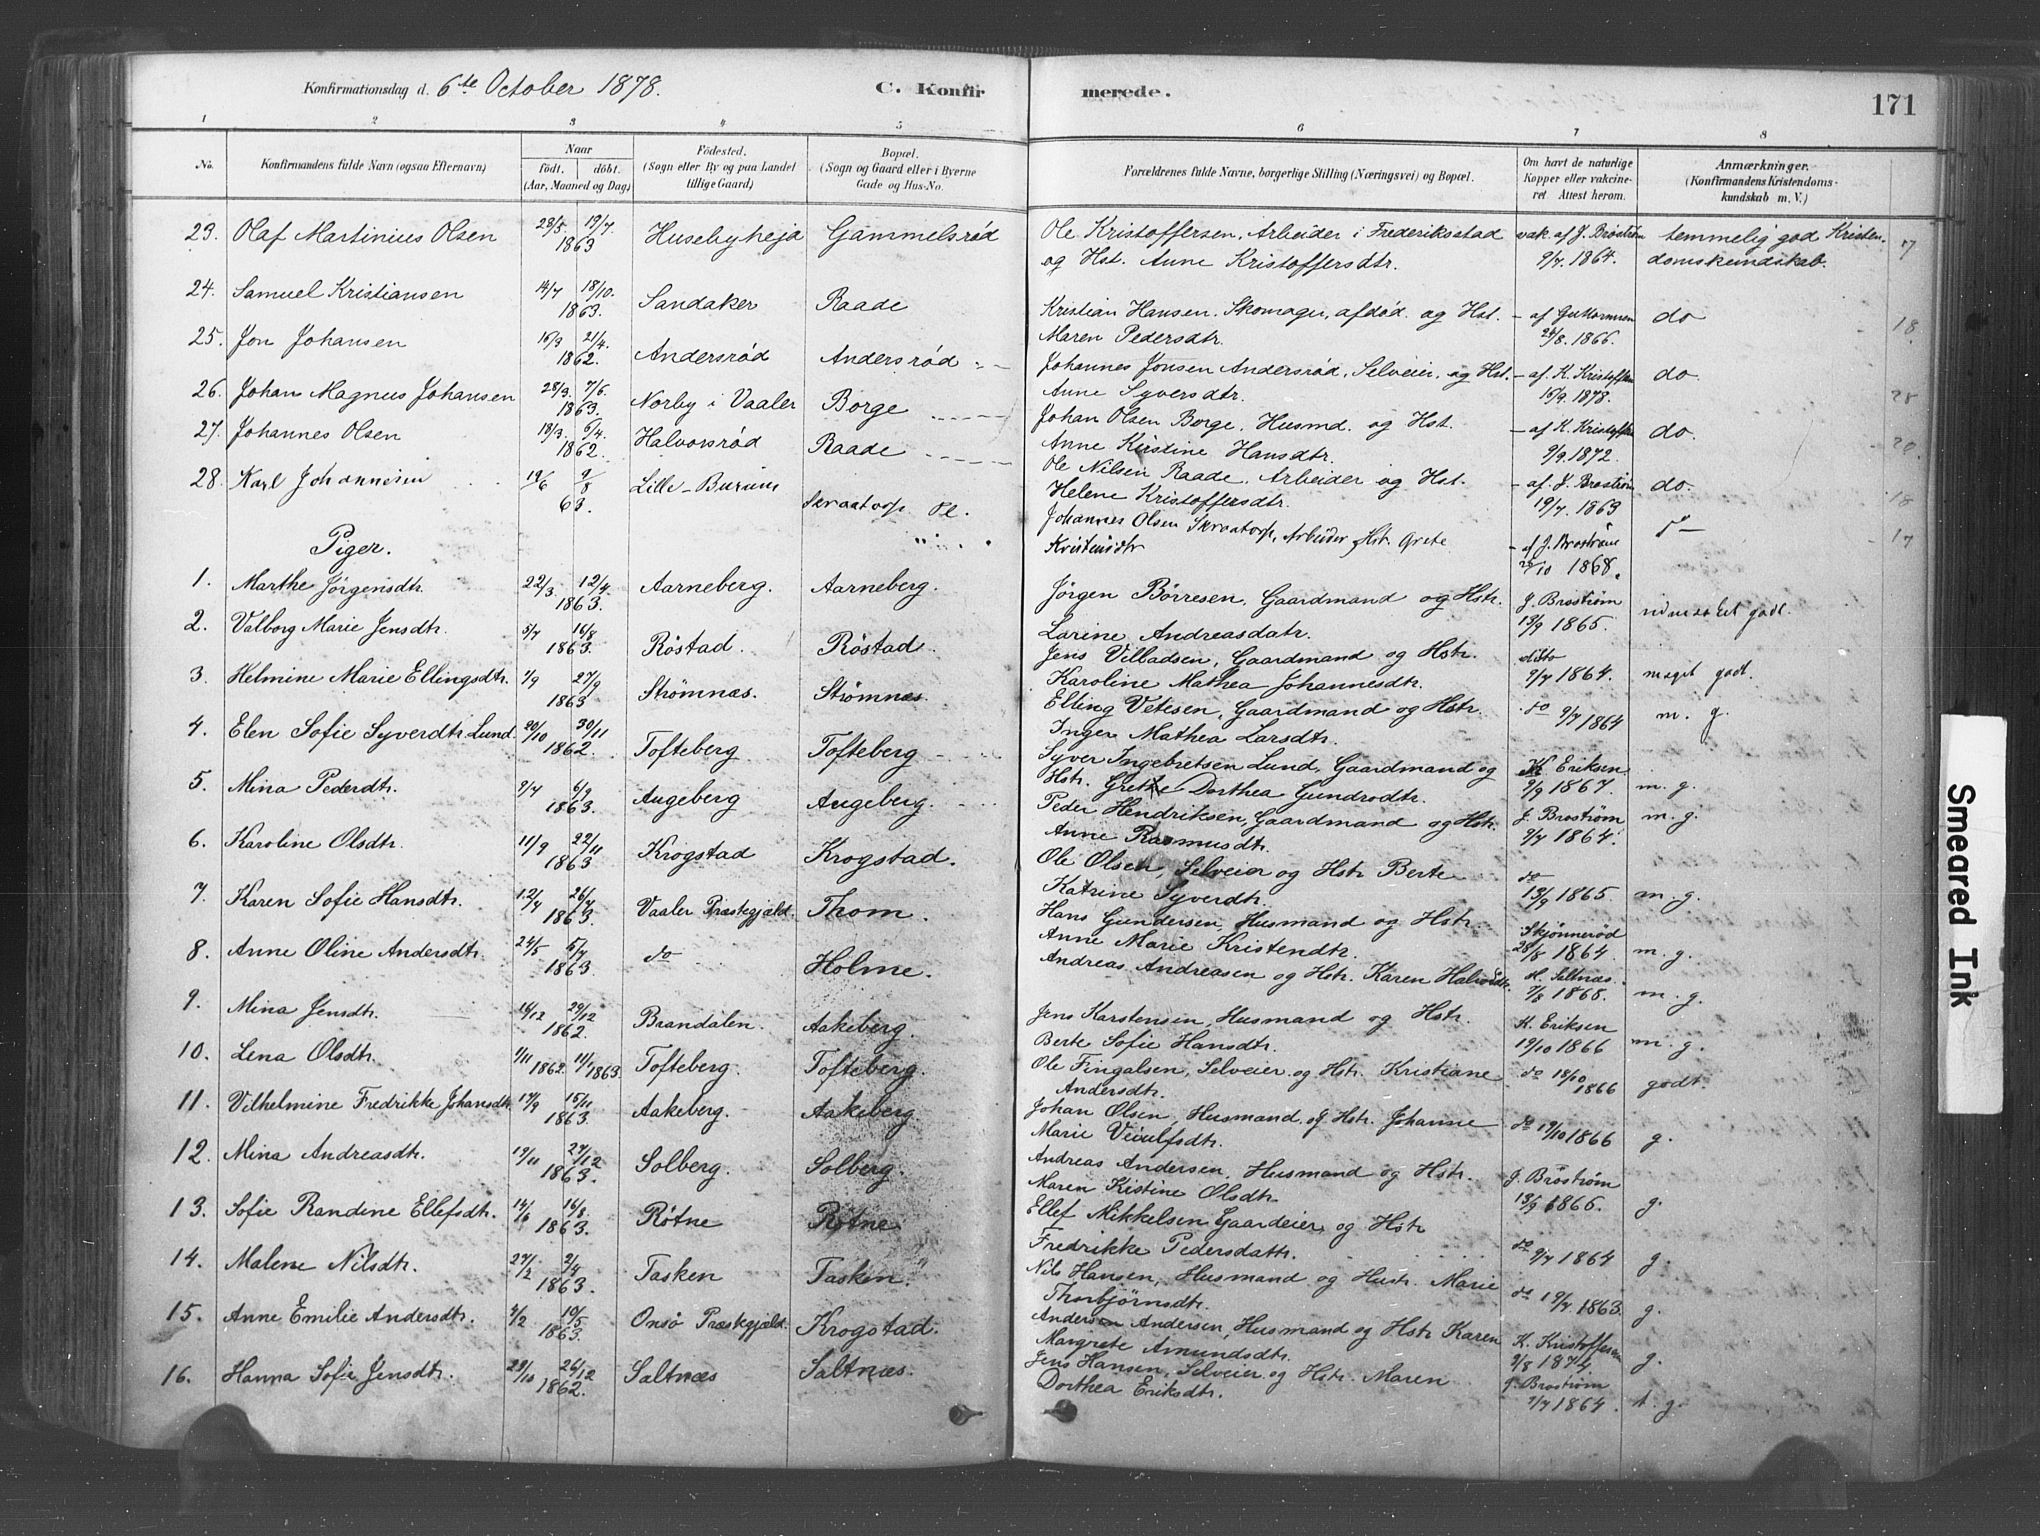 Konfirmationsdag d. 6te October 1878. C. Konfirmerede. 171
1 2 3 4 5 6 7 8
No. Konfirmandens fulde Navn (ogsaa Efternavn) Naar födt. döbt. (Aar, Maaned og Dag) Födested. (Sogn eller By og paa Landet tillige Gaard) Bopæl. (Sogn og Gaard eller i Byerne Gade og Hus-No. Forældrenes fulde Navne, borgerlige Stilling (Næringsvei) og Bopæl. Om havt de naturlige Kopper eller vakcineret Attest herom. Anmærkninger. (Konfirmandens Kristendomskundskab m. V.)
23. Olaf Martinius Olsen 28/5 19/7 1863 Husebyheja Gammelsrød Ole Kristoffersen, Arbeider i Frederiksstad og Hst. Anne Kristoffersdtr. vak. af J. Brostrøm 9/7 1864. temmelig god Kristendomskundskab. 17
24. Samuel Kristiansen 14/7 18/10 1863. Sandaker Raade Kristian Hansen, Skomager, afdød og Hst. Maren Pedersdtr. – af Guttormsen 24/8. 1866. do 18.
25. Jon Johansen 16/3 21/4. 1862. Andersrød Andersrød Johannes Jonsen Andersrød, Selveier, og Hst. Anne Syversdtr. – af K. Kristoffersen 16/9. 1878. do.
26. Johan Magnus Johansen 28/3. 7/6. 1863. Norby i Vaaler Borge Johan Olsen Borge, Husmd. og Hst. Anne Kirstine Hansdtr. – af K. Kristoffersen 9/9. 1872. do.
27. Johannes Olsen 18/3 6/4. 1862. Halvorsrød Raade Ole Nilsen Raade, Arbeider og Hst. Helene Kristoffersdtr. – af J. Brostrøm 19/7. 1863 do. 18
28. Karl Johannesen 19/6 9/8 63. Lille-Burum Skraatorp Pl. Johannes Olsen Skraatorp, Arbeider, Hst. Grete Kristensdtr – af J. Brostrøm 26/10 1868. do 17
Piger.
1. Marthe Jørgensdtr. 22/3. 12/4. 1863. Aarneberg. Aarneberg. Jørgen Børresen, Gaardmand og Hstr. Larine Andreasdatr. J. Brostrøm 13/9 1865. udmærket godt.
2. Valborg Marie Jensdtr. 5/7 16/8 1863. Røstad. Røstad. Jens Vilbadsen, Gaardmand og Hstr. Karoline Mathea Johannesdtr. ditto 9/7 1864. meget godt.
3. Helmine Marie Ellingsdtr. 7/9 27/9 1863 Strømnæs. Strømnæs. Elling Vetesen, Gaardmand og Hstr. Inger Mathea Larsdtr. do 9/7 1864 m. g.
4. Elen Sofie Syverdtr. Lund 20/10 30/11 1862. Tofteberg Tofteberg Syver Ingebretsen Lund, Gaardmand og Hstr. Grethe Dorthea Gundrodtr. K. Eriksen 9/9 1867. m. g.
5. Mina Pederdtr. 9/7 6/9 1863. Augeberg Augeberg. Peder Hendriksen, Gaardmand og Hstr. Anne Rasmusdtr. J. Brostrøm 9/7 1864. m. g.
6. Karoline Olsdtr. 11/9 22/11 1863 Krogstad Krogstad. Ole Olsen, Selveier og Hstr Berte Katrine Syverdtr. do 13/9 1865. m. g.
7. Karen Sofie Hansdtr. 12/4 26/7 1863. Vaaler Præstegjæld. Thom. Hans Gundersen, Husmand og Hstr. Anne Marie Kristendtr. Skjønnerød 28/8 1864. m. g.
8. Anne Oline Andersdtr. 24/5 5/7 1863. do Holme. Andreas Andreasen og Hstr. Karen Halvordtr. H. Saltnæs. 7/8 1868. m. g.
9. Mina Jensdtr. 14/12 29/12 1862. Brandalen. Aakeberg. Jens Karstensen, Husmand og Hstr. Berte Sofie Hansdtr. K. Eriksen 19/10 1866 m. g.
10. Lena Olsdtr. 9/11 1862. 11/1 1863. Tofteberg. Tofteberg. Ole Fingalsen, Selveier og Hstr Kristiane Andersdtr. do 18/10 1866 godt.
11. Vilhelmine Fredrikke Johansdtr. 17/9 15/11 1863. Aakeberg. Aakeberg Johan Olsen, Husmand og Hstr. Johanne Marie Veiulfsdtr. do 19/10 1866 g.
12. Mina Andreasdtr. 19/11 27/12 1863. Solberg. Solberg. Andreas Andersen, Husmand og Hstr. Maren Kistine Olsdtr. J. Brostrøm 13/9 1865. g.
13. Sofie Randine Ellefsdtr. 14/6 16/8. 1863. Røtne Røtne Ellef Mikkelsen Gaardeier og Hstr Fredrikke Pedersdattr. do 9/7 1864 g.
14. Malene Nilsdtr. 27/2 2/4 1863. Tasken Tasken. Nils Hansen, Husmand og Hustr. Marie Thorbjørnsdtr. do 19/7 1863. g.
15. Anne Emilie Andersdtr. 4/2 10/5 1863. Onsø Præstegjæld. Krogstad. Andersen Andersen, Husmand og Hstr Karen Margrete Amundsdtr. K. Kristoffersen 9/8 1874. g.
16. Hanna Sofie Jensdtr. 29/10 26/12 1862. Saltnæs Saltnæs. Jens Hansen, Selveier og Hstr. Maren Dorthea Eriksdtr. J. Brostrøm 9/7 1864. t. g.
Smeared Ink